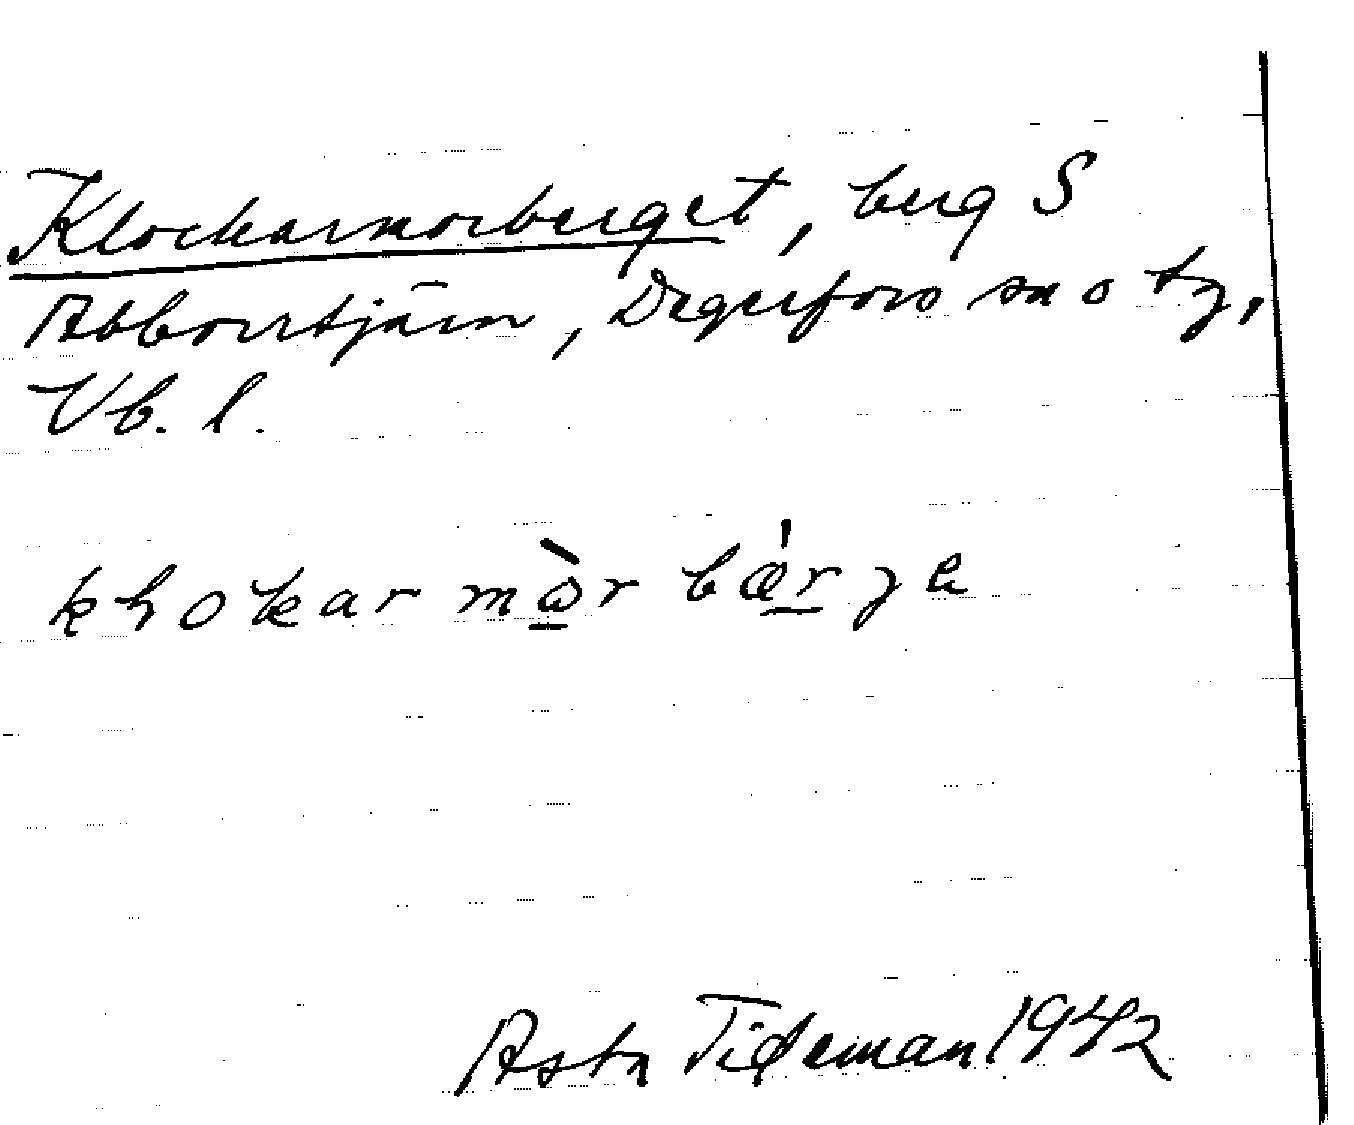 Klockarmorberget, berg S
Abborrtjärn, Degerfors sn o tg,
Vb. l.
khokar mòr bǽrge
Asta Tideman 1942